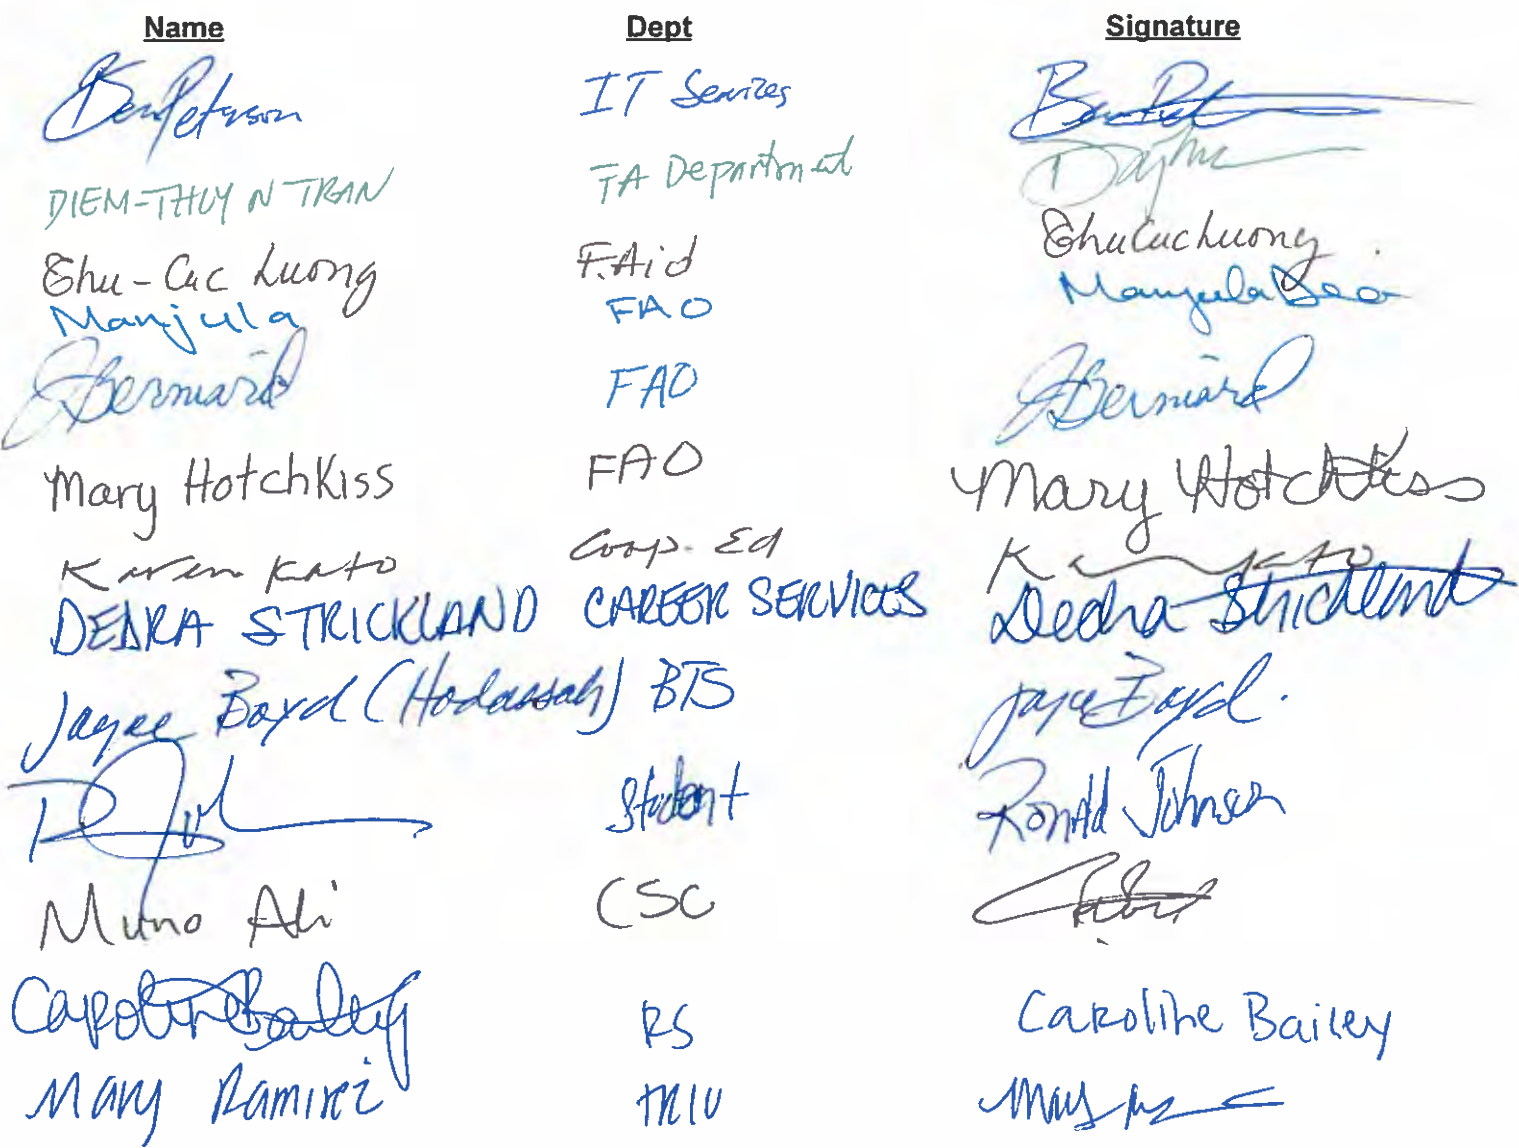 Name Dept Signature
Ben Peterson IT Services Ben
DIEM-THUY N TRAN FA Department
Thu-Cuc Luong F.Aid ThuCucLuong
Manjula FAO Manjula Deo
JBernard FAO JBernard
Mary HotchKiss FAO Mary Hotchkiss
Karen Kato Coop. Ed K Kato
DEDRA STRICKLAND CAREER SERVICES Dedra Strickland
Jayee Boyd (Hodassah) BTS Jayee Boyd.
Student Ronald Johnson
Muno Ali CSC
Caroline Bailey RS Caroline Bailey
Mary Ramirez TRIO Mary